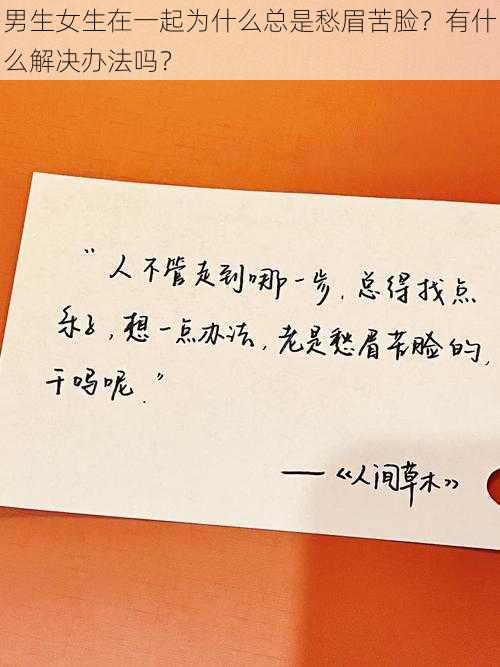 男生女生在一起为什么总是愁眉苦脸？有什
么解决办法吗？
“人不管走到哪一步，总得找点
乐子，想一点办法，老是愁眉苦脸的，
干吗呢。”
——《人间草木》